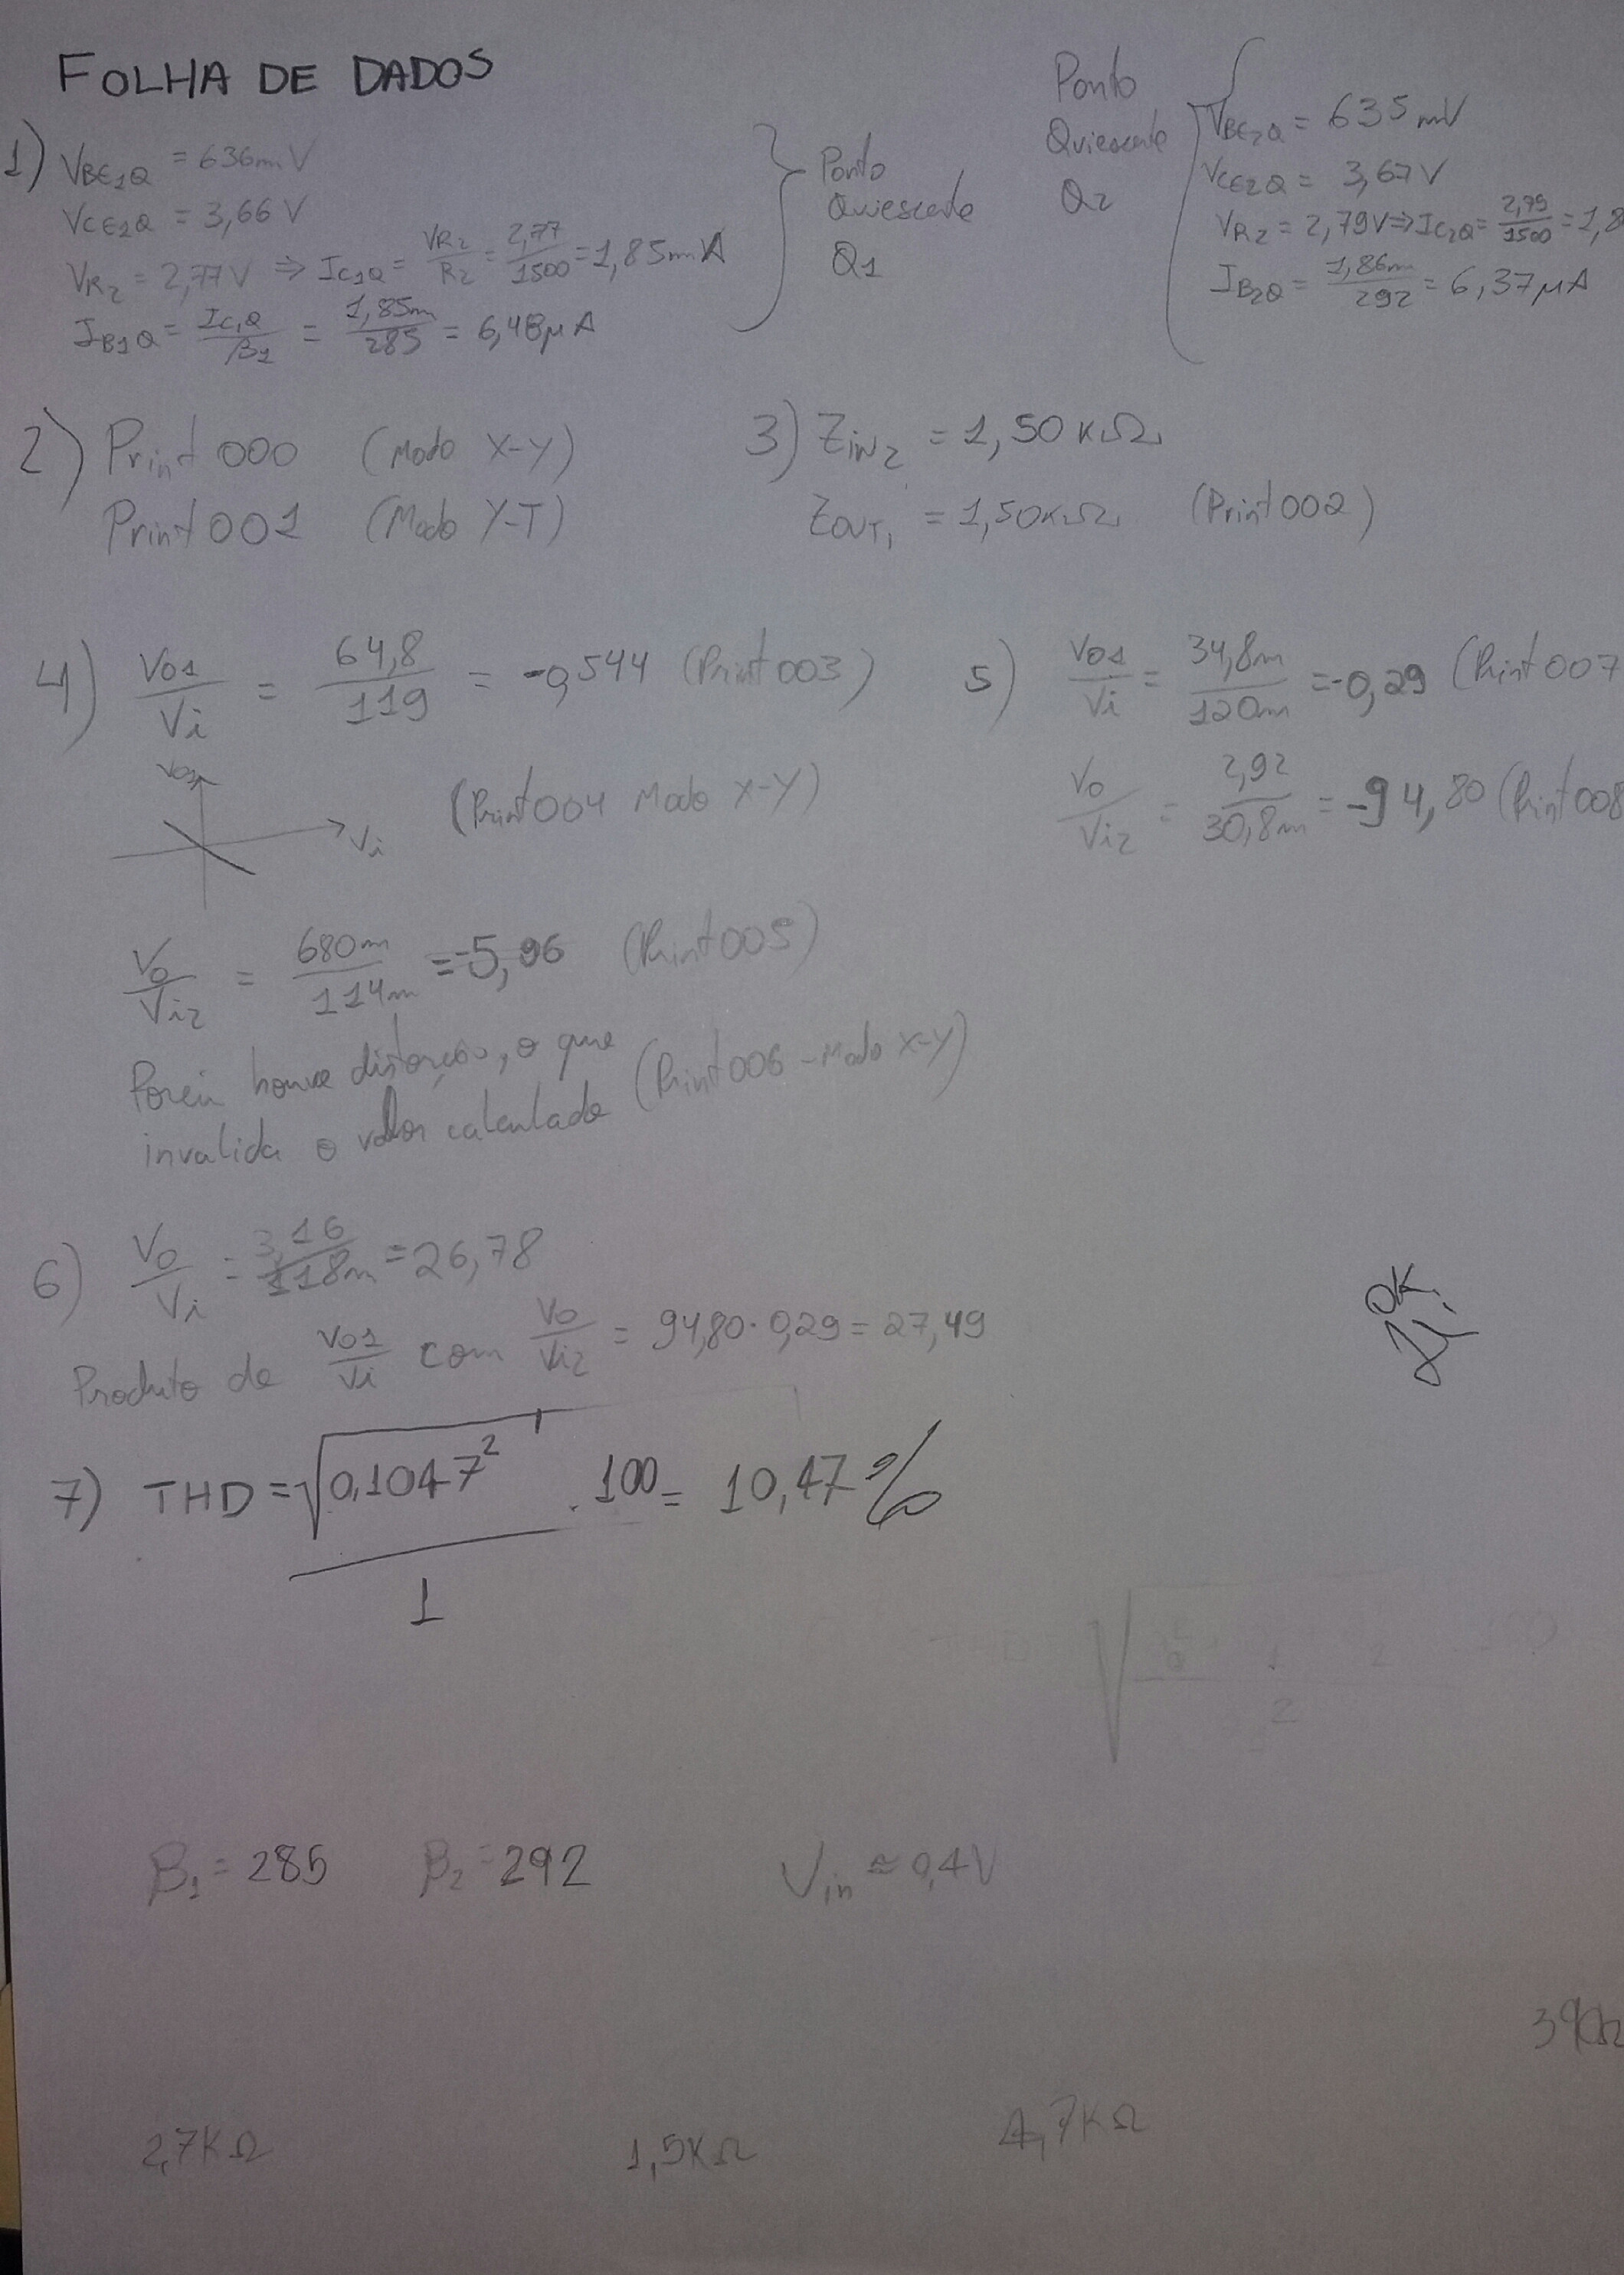 FOLHA DE DADOS
1) VBE1Q = 636mV
VCE1Q = 3,66 V
VR2 = 2,77V ⇒ IC1Q = VR2/R2 = 2,77/1500 = 1,85mA
IB1Q = IC1Q/β1 = 1,85m/285 = 6,48μA
Ponto
Quiescente
Q1
Ponto
Quiescente
Q2
VBE2Q = 635mV
VCE2Q = 3,67V
VR2 = 2,79V ⇒ IC2Q = 2,79/1500 = 1,8
IB2Q = 1,86m/292 = 6,37μA
2) Print 000 (Modo X-Y)
Print 001 (Modo Y-T)
3) ZIN2 = 1,50KΩ
ZOUT1 = 1,50KΩ (Print 002)
4) Vo1/Vi = 64,8/119 = -0,544 (Print 003)
Vo1
Vi
(Print 004 Modo X-Y)
Vo/Vi2 = 680m/114m = -5,96 (Print 005)
Porém houve distorção, o que
invalida o valor calculado (Print 006 - Modo X-Y)
5) Vo1/Vi = 34,8m/120m = -0,29 (Print 007
Vo/Vi2 = 2,92/30,8m = -94,80 (Print 008
6) Vo/Vi = 3,16/118m = 26,78
Produto de Vo1/Vi com Vo/Vi2 = 94,80 · 0,29 = 27,49
OK.
7) THD = √0,1047²/1 . 100 = 10,47%
β1 = 285 β2 = 292 Vin ≈ 0,4V
390Ω
2,7KΩ 1,5KΩ 4,7KΩ